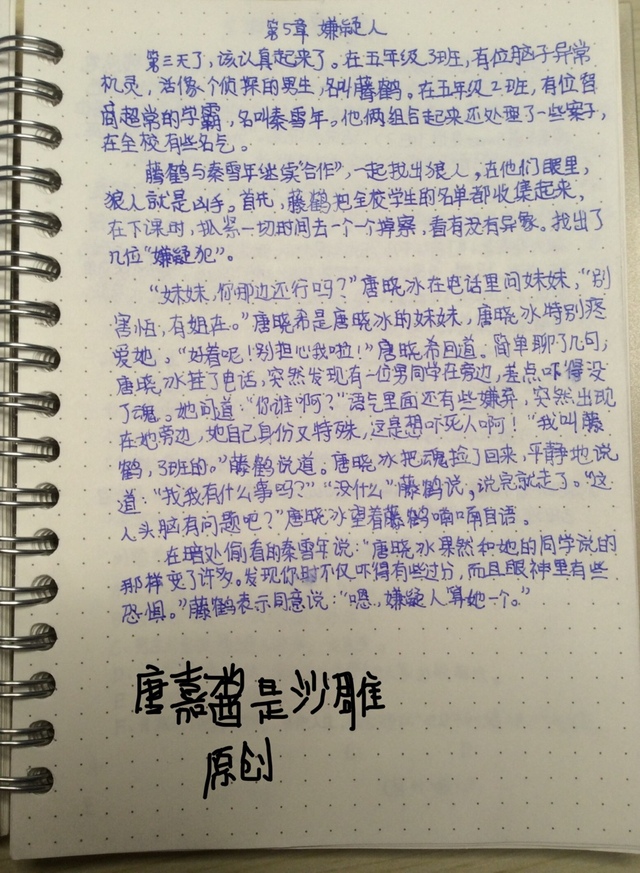 第5章 嫌疑人
第三天了，该认真起来了。在五年级3班，有位脑子异常
机灵，活像个侦探的男生，名叫藤鹤。在五年级2班，有位智
商超常的学霸，名叫秦雪年。他俩组合起来还处理了一些案子，
在全校有些名气。
藤鹤与秦雪年继续“合作”，一起找出狼人，在他们眼里，
狼人就是凶手。首先，藤鹤把全校学生的名单都收集起来，
在下课时，抓紧一切时间去一个一个观察，看有没有异象。找出了
几位“嫌疑犯”。
“妹妹，你那边还行吗？”唐晓冰在电话里问妹妹，“别
害怕，有姐在。”唐晓希是唐晓冰的妹妹，唐晓冰特别疼
爱她，“好着呢！别担心我啦！”唐晓希回道。简单聊了几句，
唐晓冰挂了电话，突然发现有一位男同学在旁边，差点吓得没
了魂。她问道：“你谁啊？”语气里面还有些嫌弃，突然出现
在她旁边，她自己身份又特殊，这是想吓死人啊！“我叫藤
鹤，3班的。”藤鹤说道。唐晓冰把魂捡了回来，平静地说
道：“找我有什么事吗？”“没什么”藤鹤说，说完就走了。“这
人头脑有问题吧？”唐晓冰望着藤鹤喃喃自语。
在暗处偷看的秦雪年说：“唐晓冰果然和她的同学说的
那样变了许多。发现你时不仅吓得有些过分，而且眼神里有些
恐惧。”藤鹤表示同意说：“嗯，嫌疑人算她一个。”
唐嘉酱是沙雕
原创